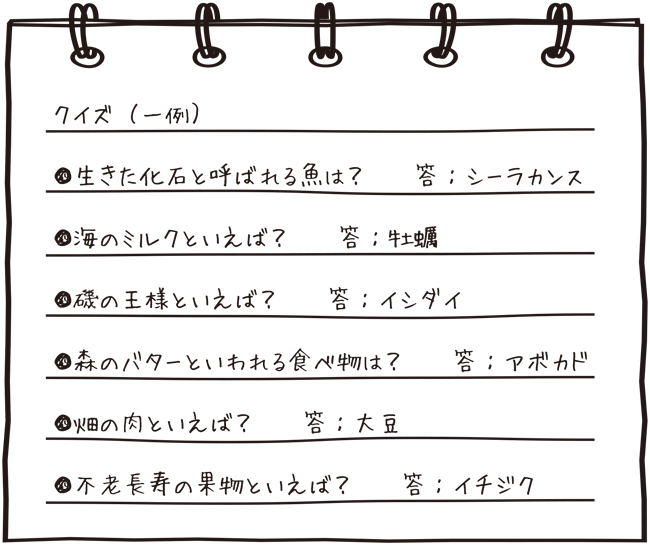 クイズ（一例）
●生きた化石と呼ばれる魚は？　答；シーラカンス
●海のミルクといえば？　答；牡蠣
●磯の王様といえば？　答；イシダイ
●森のバターといわれる食べ物は？　答；アボカド
●畑の肉といえば？　答；大豆
●不老長寿の果物といえば？　答；イチジク